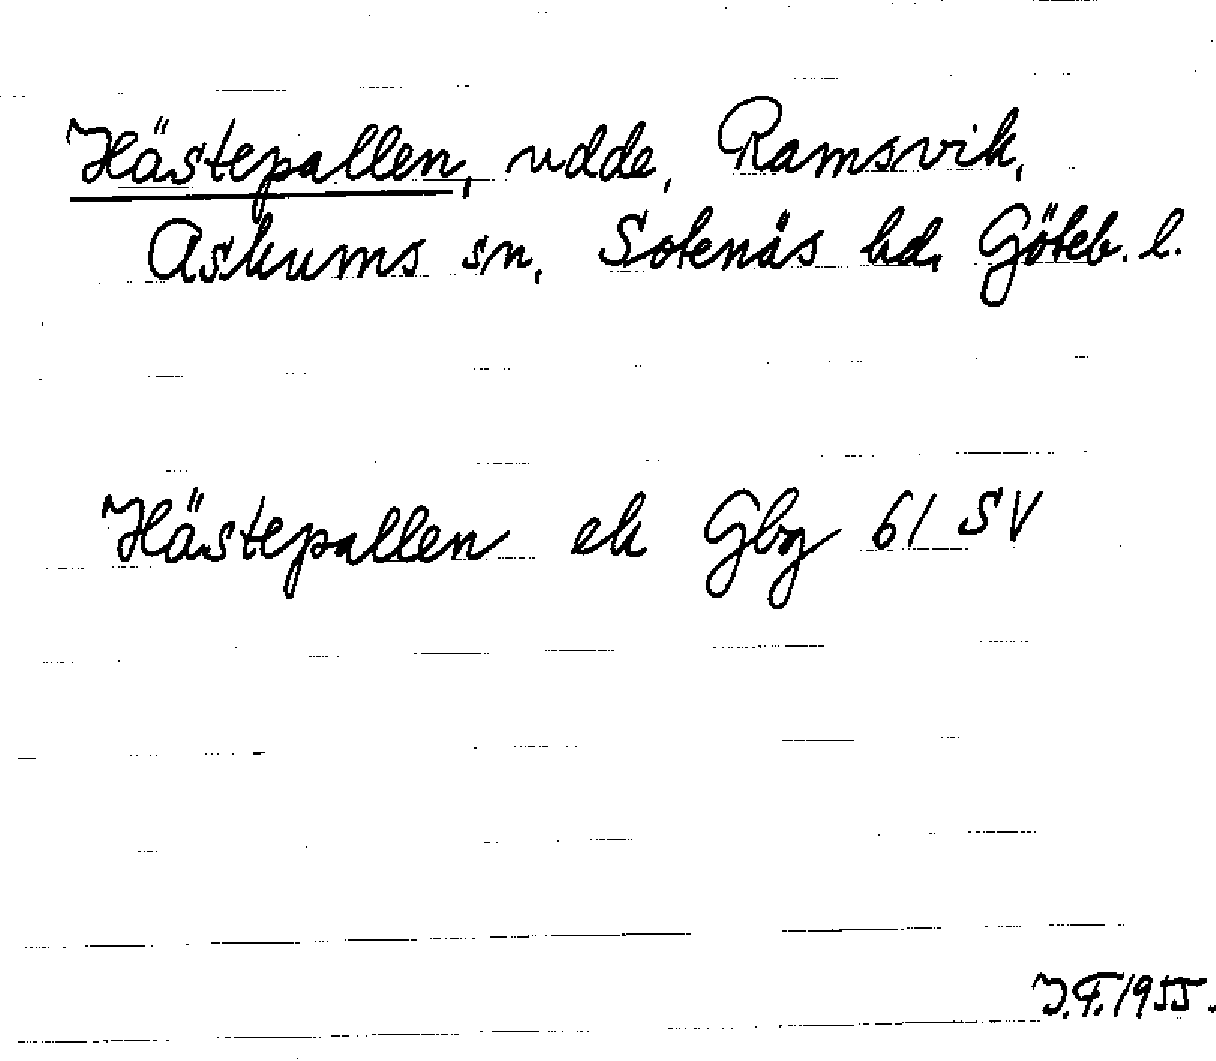 Hästepallen, udde, Ramsvik,
Askums sn, Sotenäs hd, Göteb. l.
Hästepallen ek Gbg 61 SV
J.F. 1955.